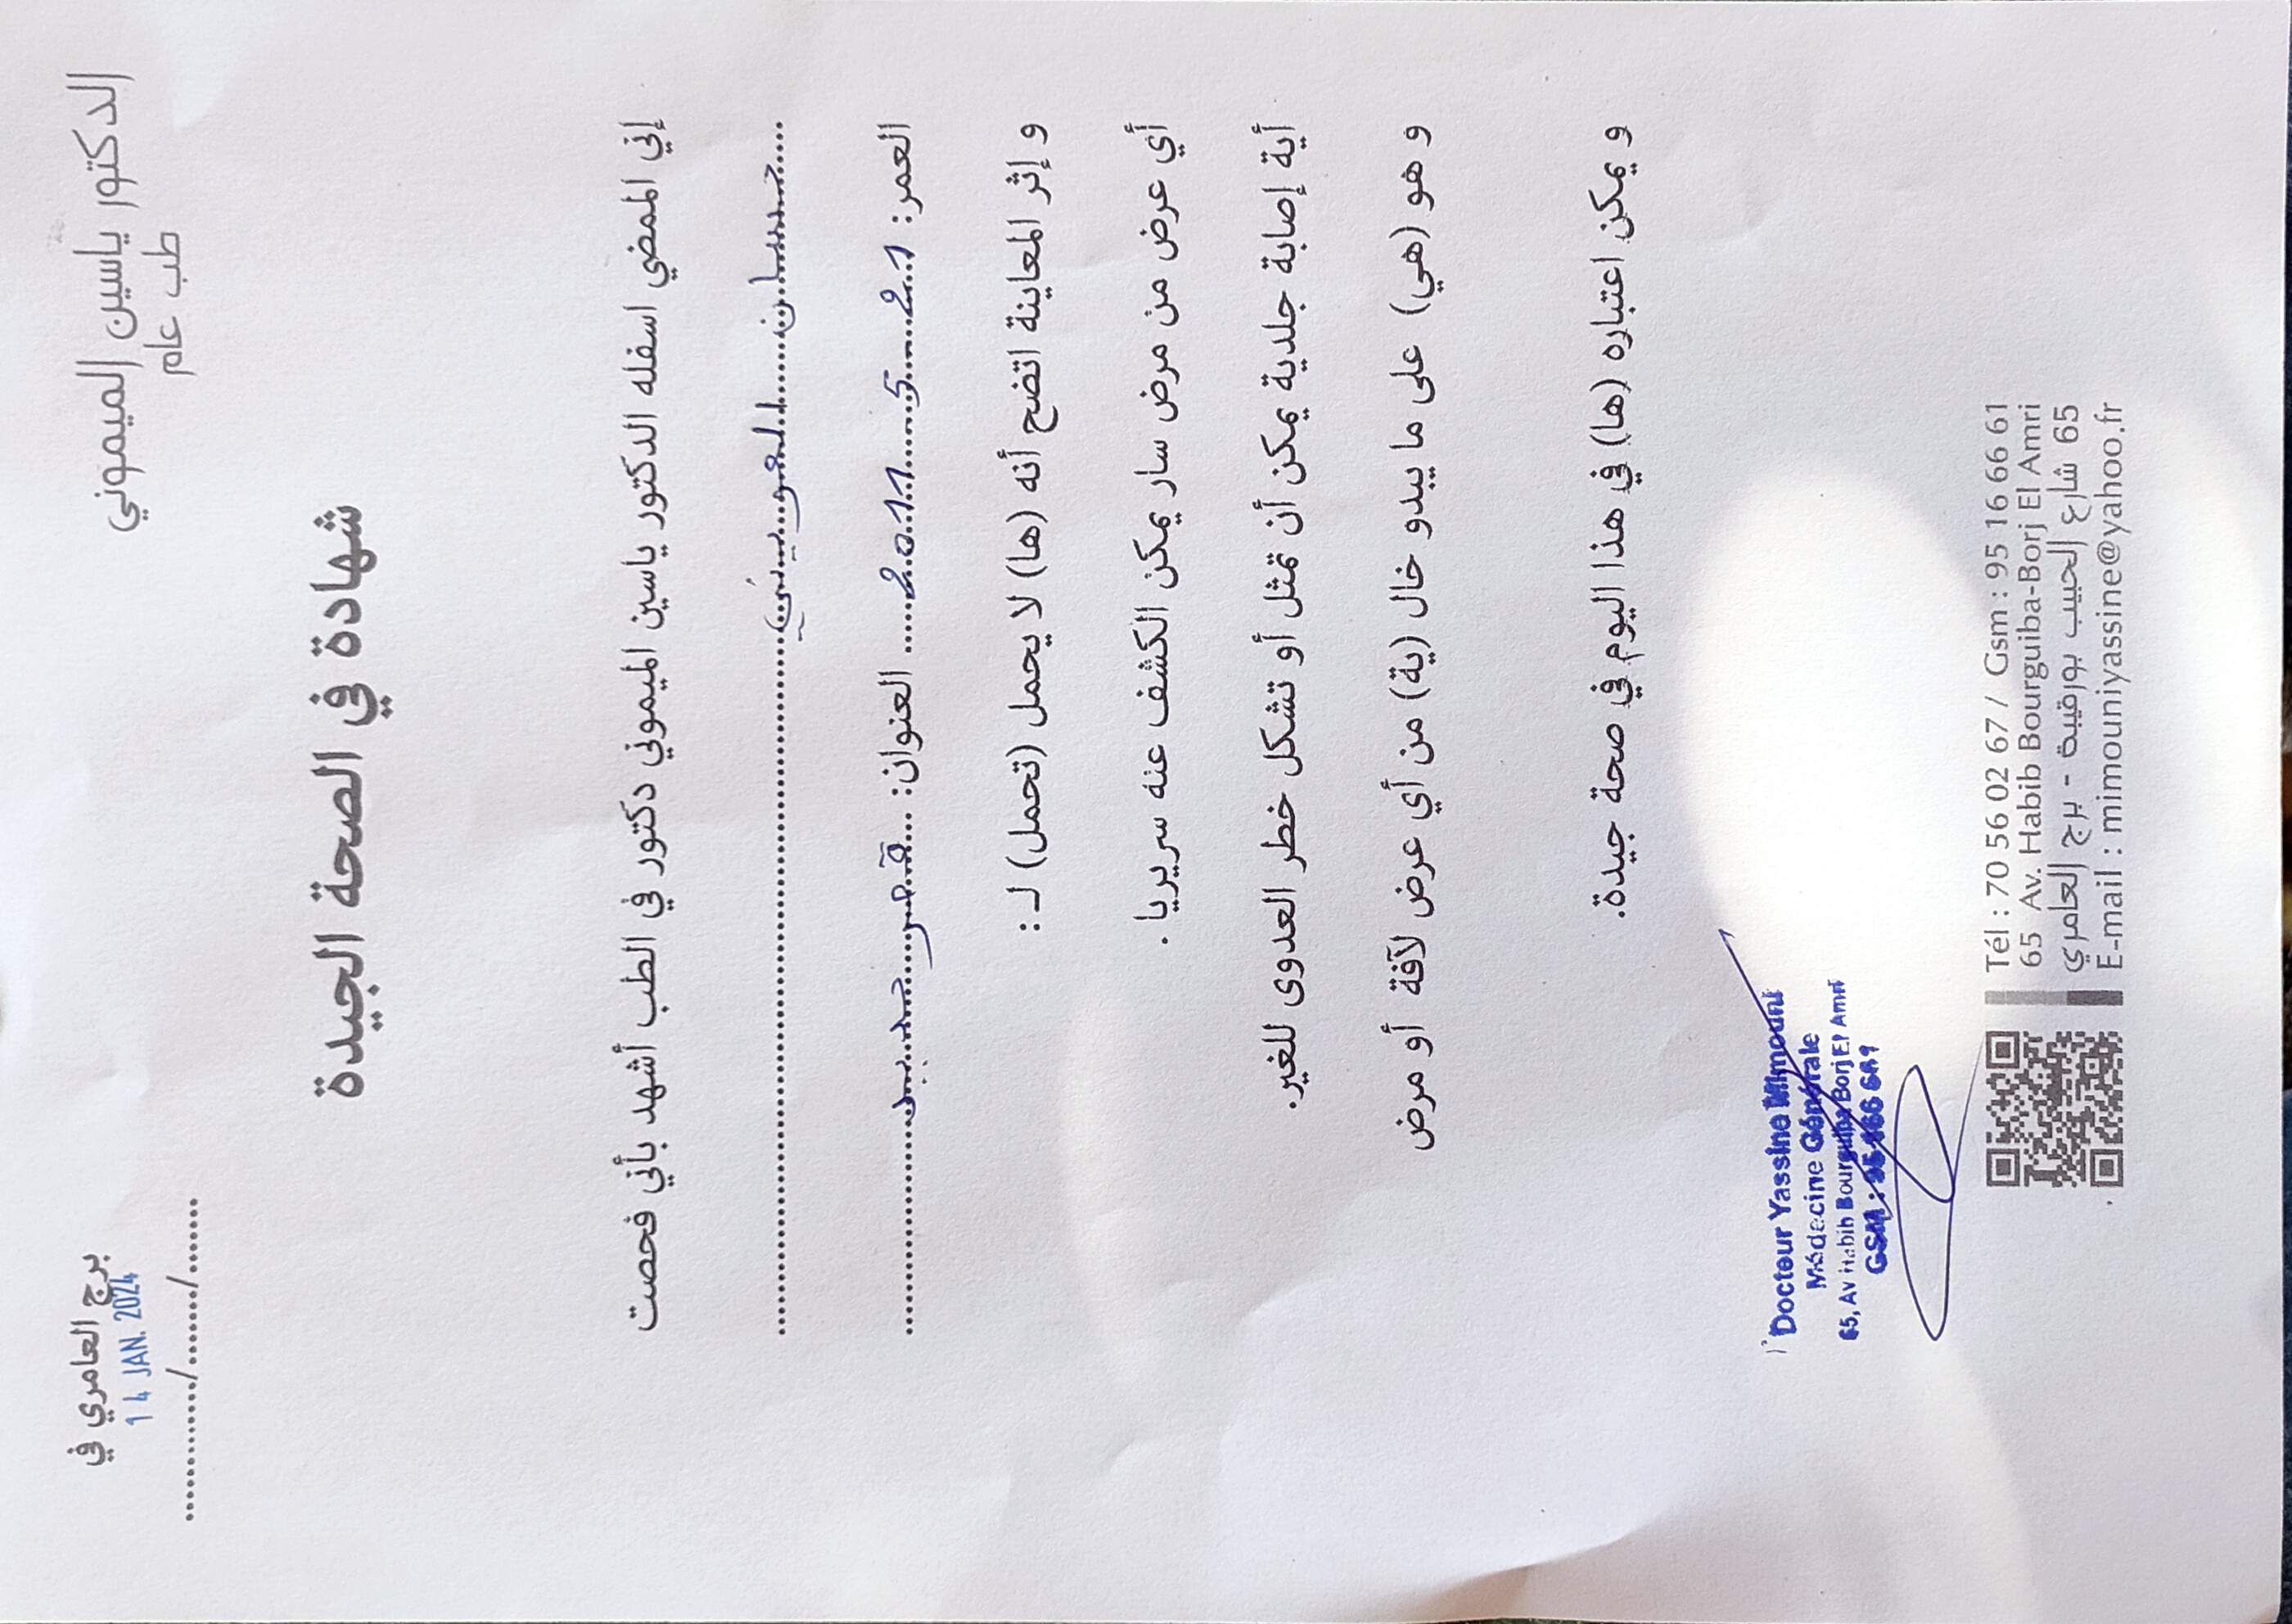 الدكتور ياسين الميموني
طب عام
برج العامري في
14 JAN. 2024
............/........./......
شهادة في الصحة الجيدة
إني الممضي اسفله الدكتور ياسين الميموني دكتور في الطب أشهد بأني فحصت
حسان العويني
العمر: 21 5 2011 العنوان: قصر حديد
و إثر المعاينة اتضح أنه (ها) لا يحمل (تحمل) لـ :
أي عرض من مرض سار يمكن الكشف عنه سريريا .
أية إصابة جلدية يمكن أن تمثل أو تشكل خطر العدوى للغير.
و هو (هي) على ما يبدو خال (ية) من أي عرض لآفة أو مرض
و يمكن اعتباره (ها) في هذا اليوم في صحة جيدة.
Docteur Yassine Mimouni
Médecine Générale
65, Av Habib Bourguiba Borj El Amri
GSM : 95 166 661
Tél : 70 56 02 67 / Gsm : 95 16 66 61
65 Av. Habib Bourguiba-Borj El Amri
65 شارع الحبيب بورقيبة - برج العامري
E-mail : mimouniyassine@yahoo.fr